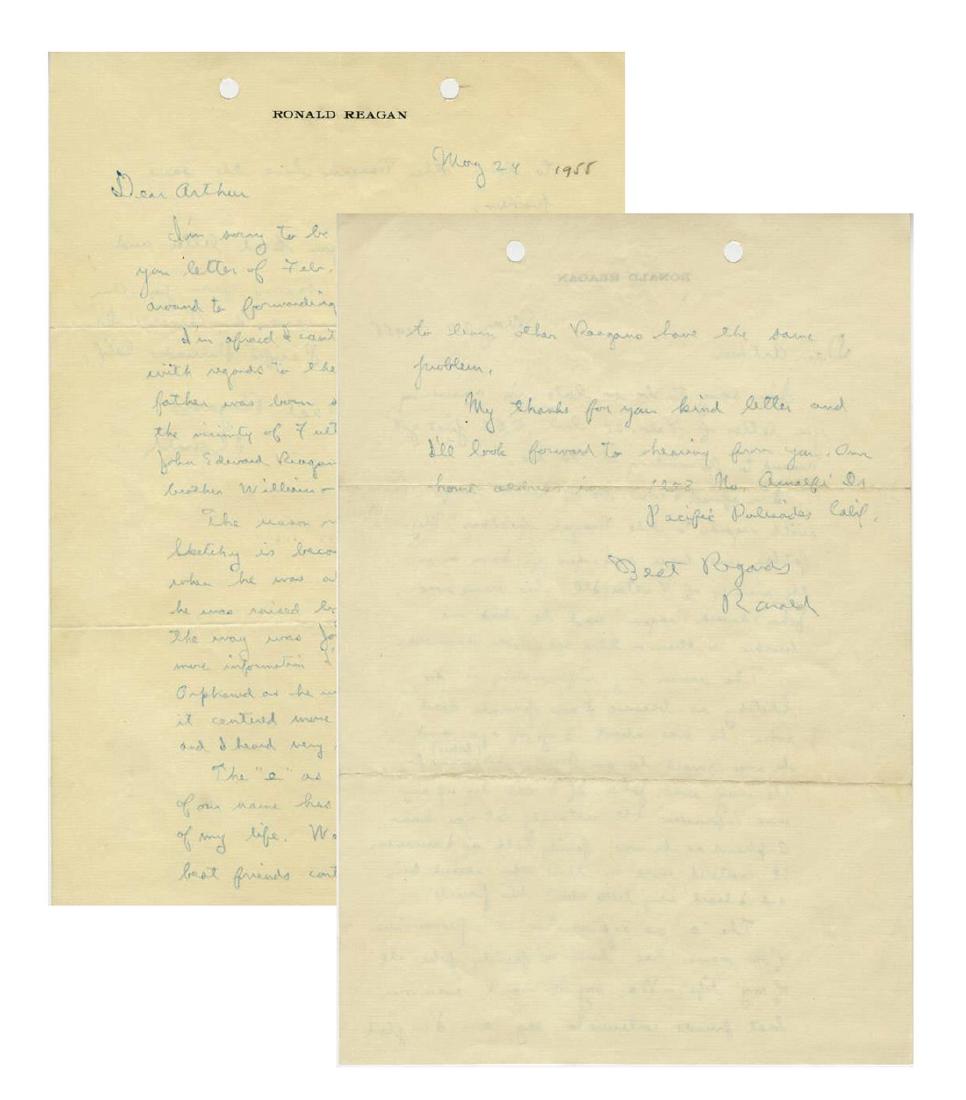 RONALD REAGAN
May 24 1955
Dear Arthur
I'm sorry to be
you letter of Febr.
around to forwarding
I'm afraid I can't
with regards to the
father was born
the vicinity of Fult
John Edward Reagan
brother William –
The reason
sketchy is becau
when he was
he was raised
the way was Jo
more information
Orphaned as he
it centered more
and I heard very
The "e" as
of our name has
of my life. We
best friends cont
to learn other Reagans have the same
problem.
My thanks for you kind letter and
I'll look forward to hearing from you. Our
home address is – 1258 No. Amalfi Dr
Pacific Palisades Calif.
Best Regards
Ronald